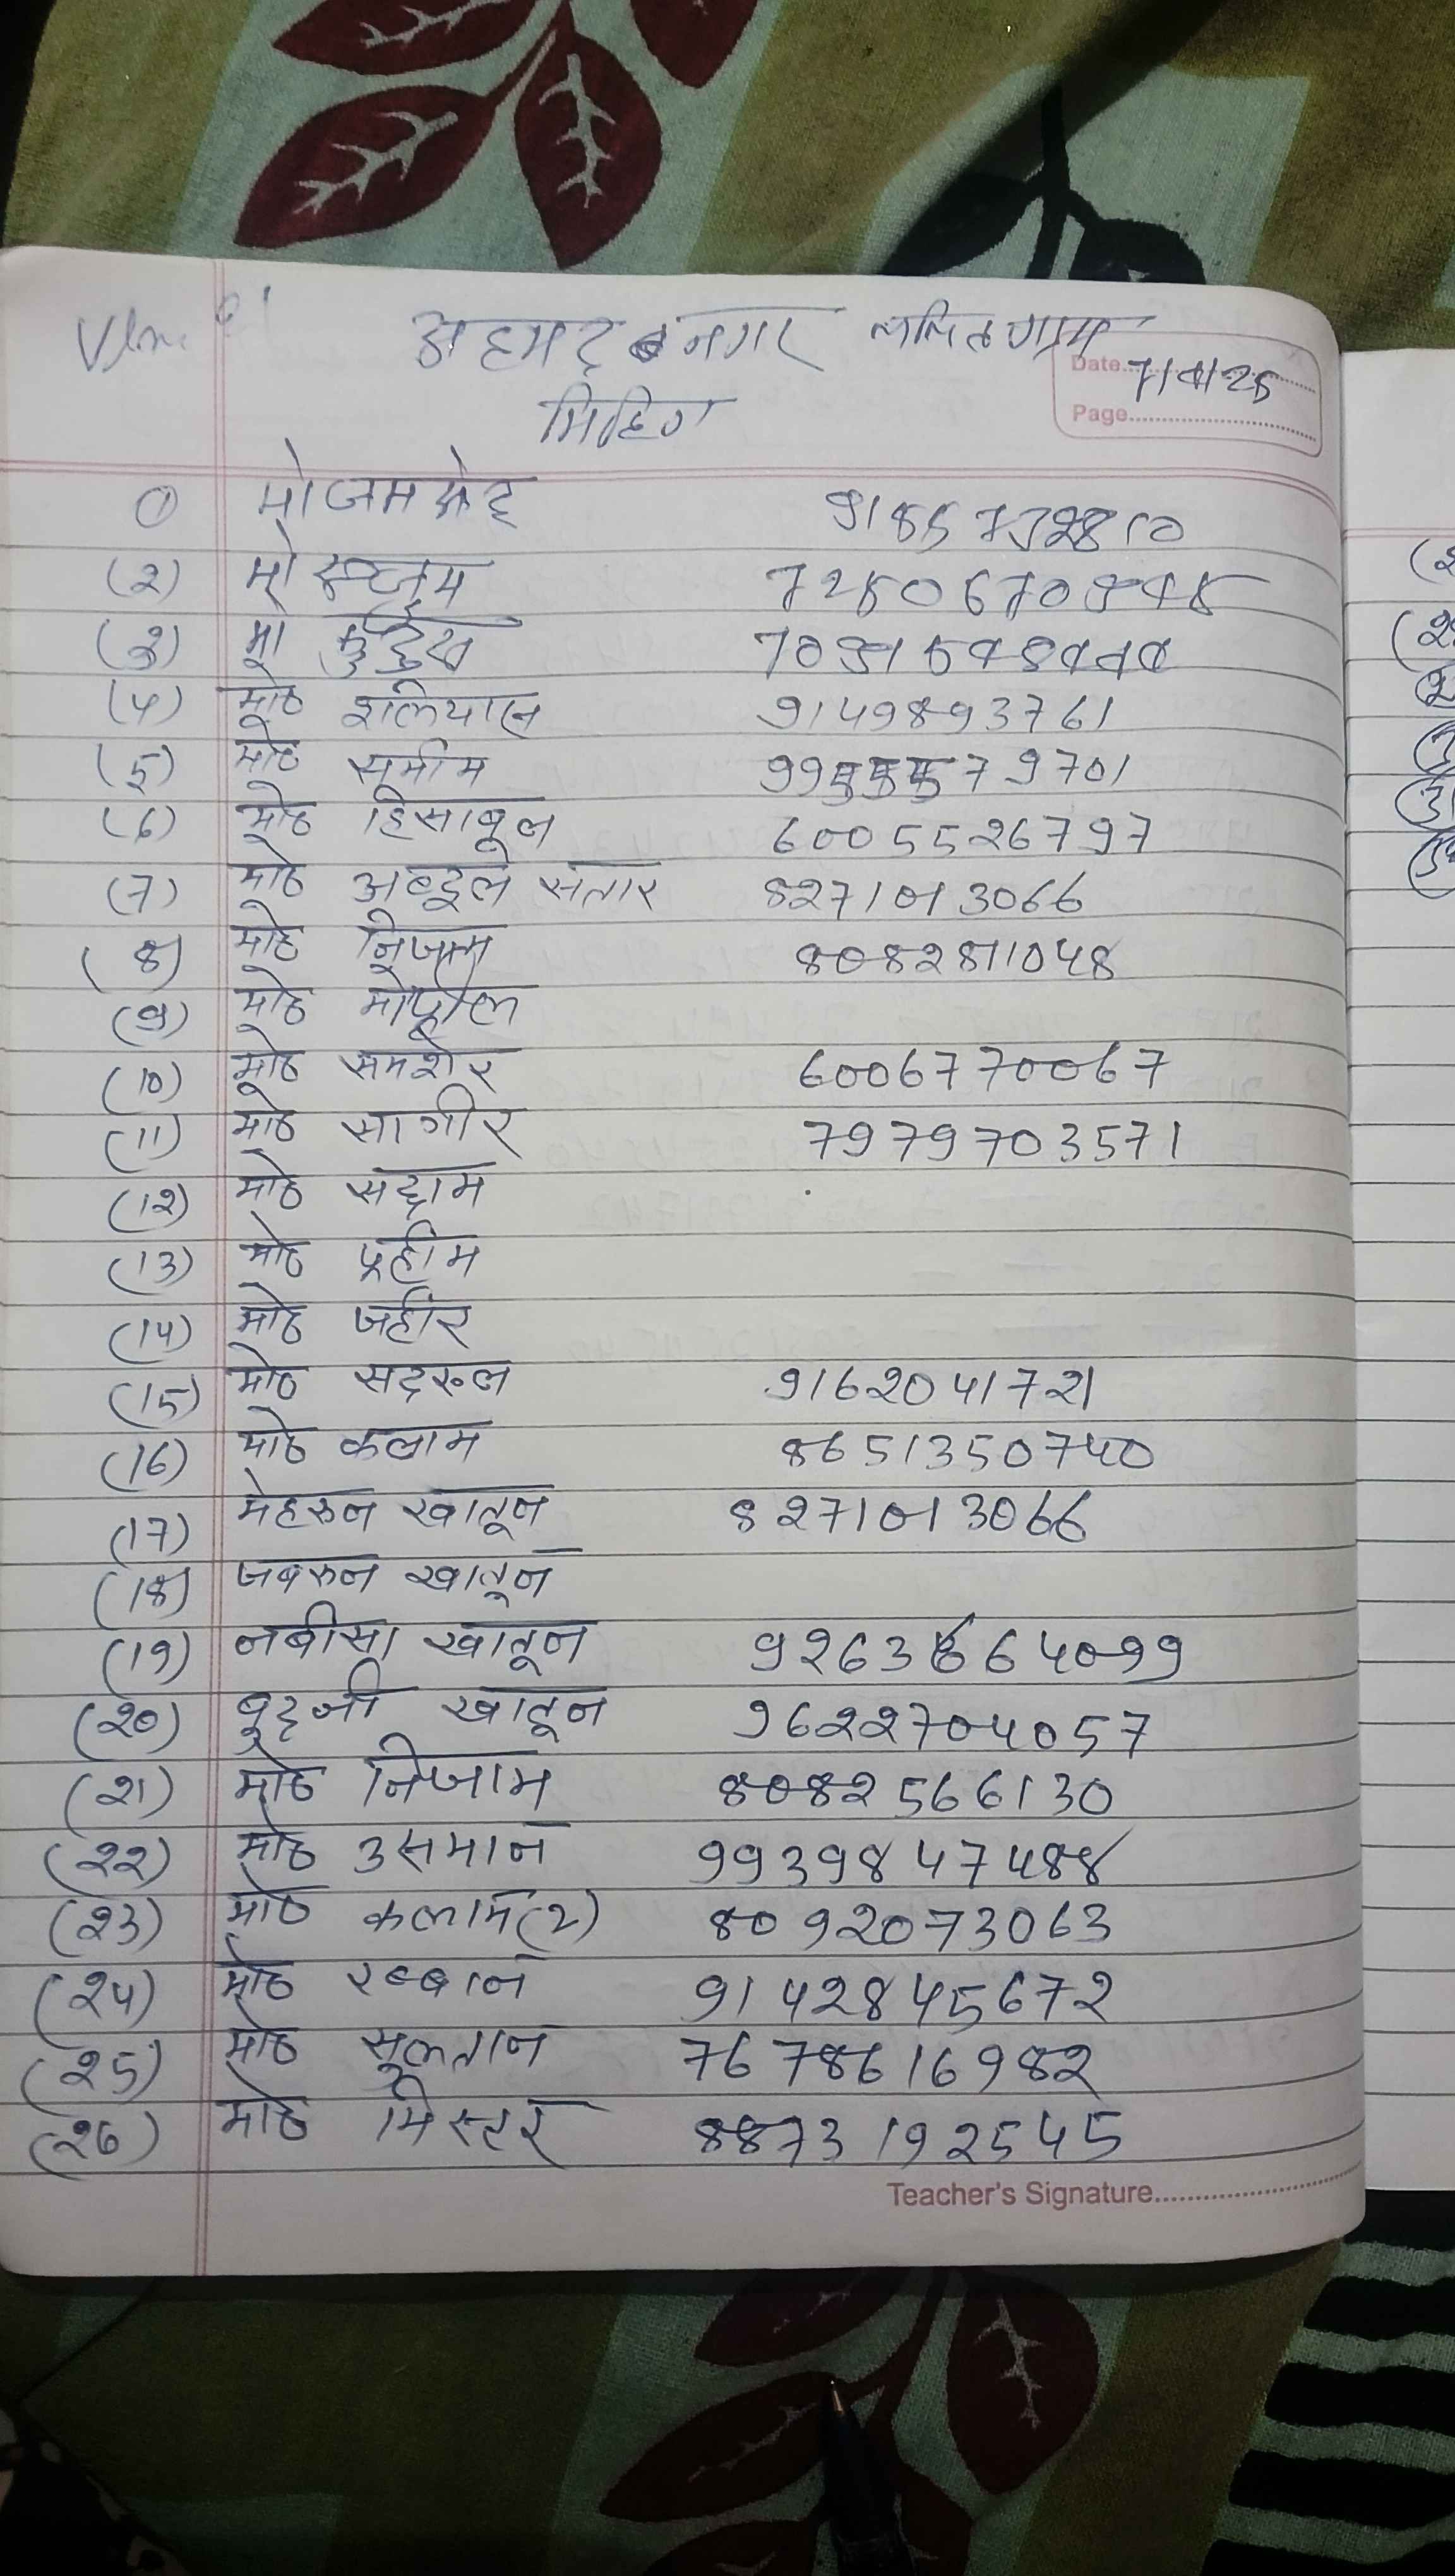 अहमद नगर ललितग्राम
Date 7/4/25
मिटिंग
Page
① मो जमशेद 9185732810
(2) मो
(3) मो
(4) मो० इलियास 9149893761
(5) मो० समीम 9955579701
(6) मो० हिसाबूल 6005526797
(7) मो० अब्दूल सतार 8271013066
(8) मो० निजाम 8082811048
(9) मो०
(10) मो० समशेर 6006770067
(11) मो० सागीर 7979703571
(12) मो० सद्दाम
(13) मो०
(14) मो० जहीर
(15) मो० सदरूल 9162041721
(16) मो० कलाम 8651350740
(17) मेहरुन खातून 8271013066
(18) जबरुन खातून
(19) नबीसा खातून 9263664099
(20) बुदजी खातून 9622704057
(21) मो० निजाम 8082566130
(22) मो० उसमान 9939847488
(23) मो० कलाम (2) 8092073063
(24) मो० रब्बान 9142845672
(25) मो० सूलतान 7678616982
(26) मो० मिस्टर 8873192545
Teacher's Signature